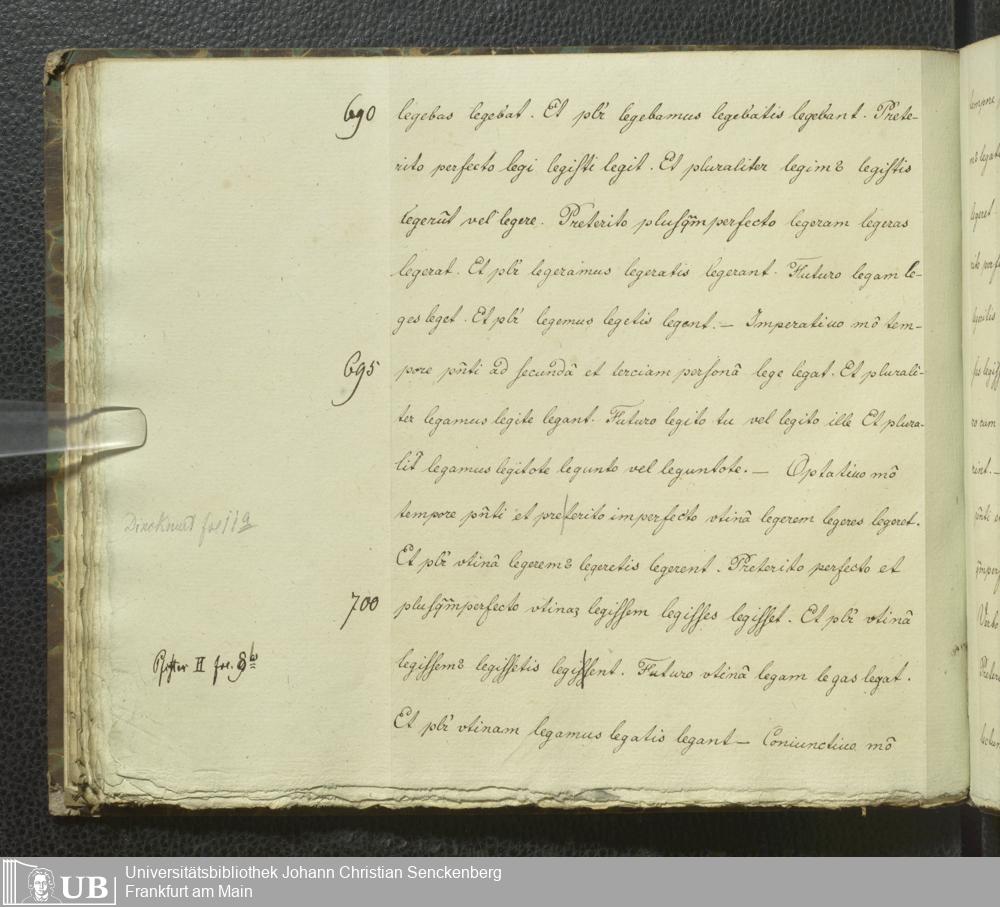 690 legebas legebat. Et plr̄ legebamus legebatis legebant. Prete-
rito perfecto legi legisti legit. Et pluraliter legimꝰ legistis
legerūt vel legere. Preterito plusq̄mperfecto legeram legeras
legerat. Et plr̄ legeramus legeratis legerant. Futuro legam le-
ges leget. Et plr̄ legemus legetis legent. — Imperatiuo mō tem-
695 pore pn̄ti ad secundā et terciam personā lege legat. Et plurali-
ter legamus legite legant. Futuro legito tu vel legito ille Et plura-
lit̄ legamus legitote legunto vel leguntote. — Optatiuo mō
tempore pn̄ti et preterito imperfecto vtinā legerem legeres legeret.
Et plr̄ vtinā legeremꝰ legeretis legerent. Preterito perfecto et
700 plusq̄mperfecto vtinaꝫ legissem legisses legisset. Et plr̄ vtinā
legissemꝰ legissetis legissent. Futuro vtinā legam legas legat.
Et plr̄ vtinam legamus legatis legant — Coniunctiuo mō
fre
Pfister II fre. 8
UB
Universitätsbibliothek Johann Christian Senckenberg
Frankfurt am Main